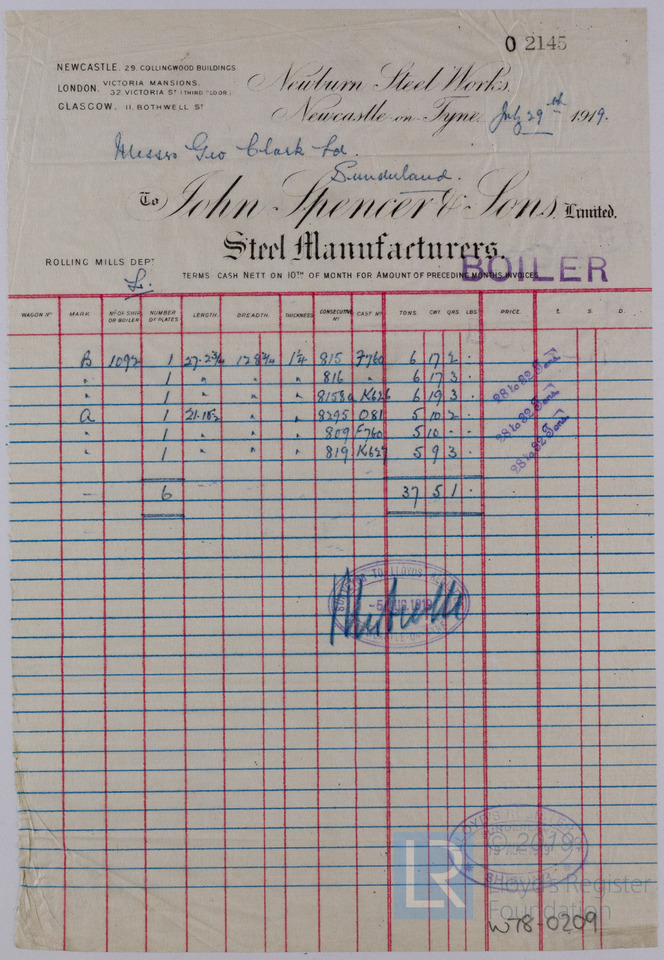 O 2145
NEWCASTLE. 29. COLLINGWOOD BUILDINGS
LONDON. VICTORIA MANSIONS, 32. VICTORIA ST (THIRD FLOOR)
GLASGOW. 11. BOTHWELL ST
Newburn Steel Works,
Newcastle-on-Tyne, July 29th 1919.
Messrs Geo Clark Ld
Sunderland.
To John Spencer & Sons, Limited,
Steel Manufacturers.
ROLLING MILLS DEPT
TERMS CASH NETT ON 10TH OF MONTH FOR AMOUNT OF PRECEDING MONTHS INVOICES
BOILER
WAGON No MARK. No OF SHIP OR BOILER NUMBER OF PLATES LENGTH. BREADTH. THICKNESS CONSECUTIVE No CAST No TONS. CWT. QRS. LBS. PRICE. £. S. D.
B 1092 1 27.2 3/4 128 3/4 1 1/4 815 F760 6 17 2 .
" 1 " " " 816 " 6 17 3 .
" 1 " " " 8158a K626 6 19 3 .
A 1 21.10 " " 8295 O81 5 10 2 .
" 1 " " " 809 F760 5 10 - .
" 1 " " " 819 K627 5 9 3 .
28 to 32 Tons
28 to 32 Tons
28 to 32 Tons
6 37 5 1 .
SURVEYOR TO LLOYD'S REGISTER
-5 AUG. 1919
LLOYD'S REGISTER
© 2019
SHIPPING
LR
Lloyd's Register
Foundation
W78-0209